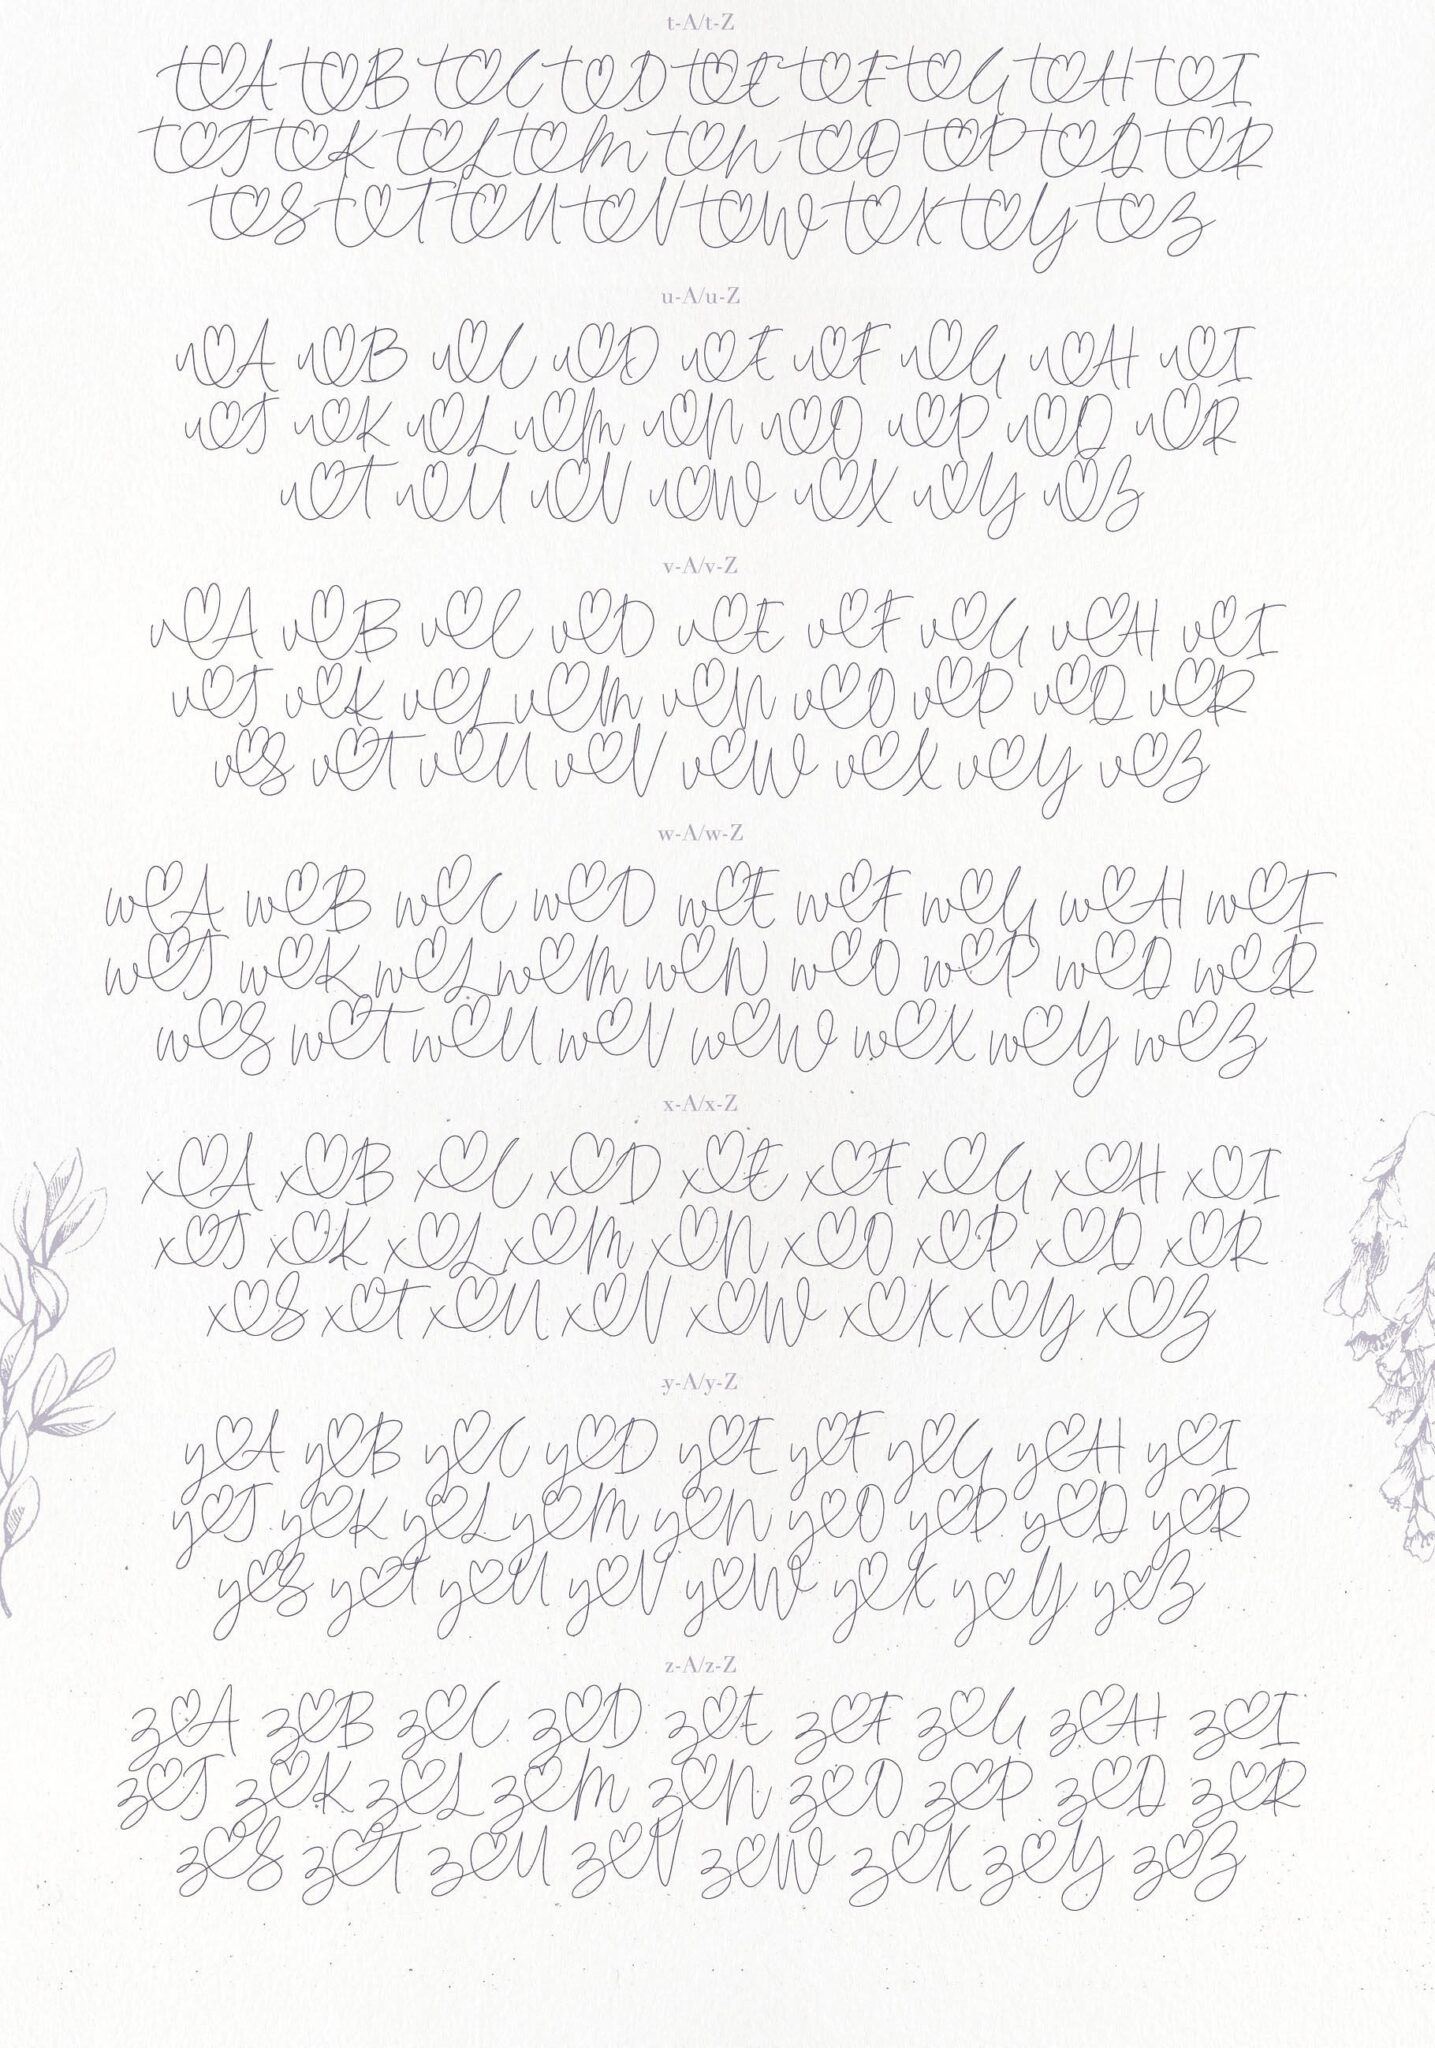 t-A/t-Z
t♡A t♡B t♡C t♡D t♡E t♡F t♡G t♡H t♡I
t♡J t♡K t♡L t♡M t♡N t♡O t♡P t♡Q t♡R
t♡S t♡T t♡U t♡V t♡W t♡X t♡Y t♡Z
u-A/u-Z
u♡A u♡B u♡C u♡D u♡E u♡F u♡G u♡H u♡I
u♡J u♡K u♡L u♡M u♡N u♡O u♡P u♡Q u♡R
u♡T u♡U u♡V u♡W u♡X u♡Y u♡Z
v-A/v-Z
v♡A v♡B v♡C v♡D v♡E v♡F v♡G v♡H v♡I
v♡J v♡K v♡L v♡M v♡N v♡O v♡P v♡Q v♡R
v♡S v♡T v♡U v♡V v♡W v♡X v♡Y v♡Z
w-A/w-Z
w♡A w♡B w♡C w♡D w♡E w♡F w♡G w♡H w♡I
w♡J w♡K w♡L w♡M w♡N w♡O w♡P w♡Q w♡R
w♡S w♡T w♡U w♡V w♡W w♡X w♡Y w♡Z
x-A/x-Z
x♡A x♡B x♡C x♡D x♡E x♡F x♡G x♡H x♡I
x♡J x♡K x♡L x♡M x♡N x♡O x♡P x♡Q x♡R
x♡S x♡T x♡U x♡V x♡W x♡X x♡Y x♡Z
y-A/y-Z
y♡A y♡B y♡C y♡D y♡E y♡F y♡G y♡H y♡I
y♡J y♡K y♡L y♡M y♡N y♡O y♡P y♡Q y♡R
y♡S y♡T y♡U y♡V y♡W y♡X y♡Y y♡Z
z-A/z-Z
z♡A z♡B z♡C z♡D z♡E z♡F z♡G z♡H z♡I
z♡J z♡K z♡L z♡M z♡N z♡O z♡P z♡Q z♡R
z♡S z♡T z♡U z♡V z♡W z♡X z♡Y z♡Z